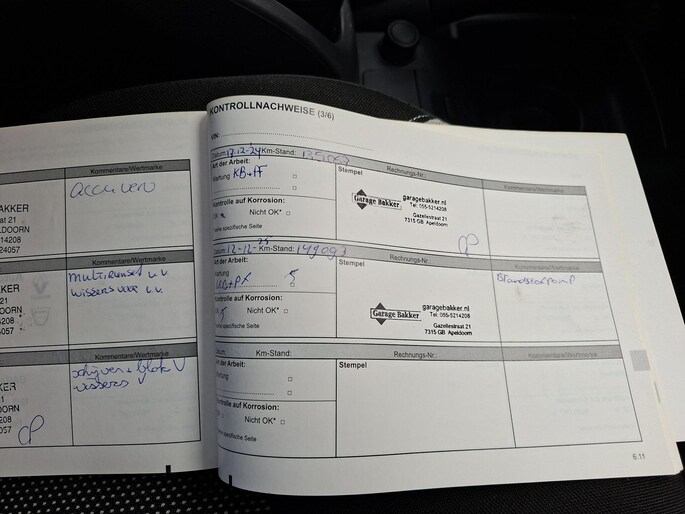 Kommentare/Wertmarke
accu verv
AKKER
at 21
LDOORN
14208
24057
Kommentare/Wertmarke
multiriemset v.v
wissers voor v.v.
KKER
21
OORN
208
057
Kommentare/Wertmarke
schijven + blok V
wissers V
KER
1
OORN
208
057
KONTROLLNACHWEISE (3/6)
VIN:
Datum: 17-12-24 Km-Stand:
Art der Arbeit:
Wartung KB+PF
Kontrolle auf Korrosion:
OK Nicht OK*
Stempel
Rechnungs-Nr.:
Garage Bakker
garagebakker.nl
Tel: 055-5214208
Gazellestraat 21
7315 GB Apeldoorn
Kommentare/Wertmarke
Datum: 12-12-25 Km-Stand:
Art der Arbeit:
Wartung
Kontrolle auf Korrosion:
Nicht OK*
spezifische Seite
Stempel
Rechnungs-Nr.:
Garage Bakker
garagebakker.nl
Tel: 055-5214208
Gazellestraat 21
7315 GB Apeldoorn
Kommentare/Wertmarke
Datum: Km-Stand:
Art der Arbeit:
Wartung
Kontrolle auf Korrosion:
Nicht OK*
spezifische Seite
Stempel
Rechnungs-Nr.:
Kommentare/Wertmarke
6.11